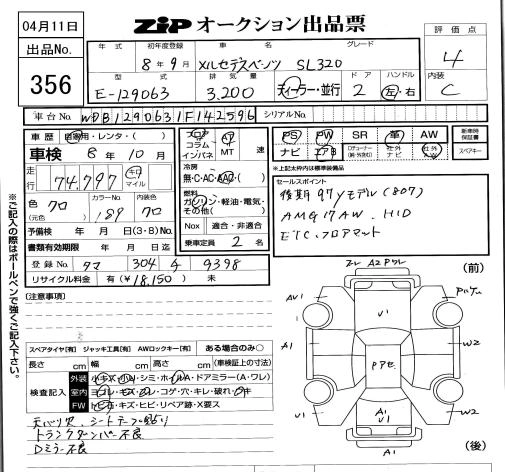 04月11日
ZiP オークション出品票
出品No.
356
年式 初年度登録 車名 グレード
8年9月 メルセデスベンツ SL320
型式 排気量 ドア ハンドル
E-129063 3,200 ディーラー・並行 2 左・右
評価点
4
内装
C
車台No. WDB1290631F142596 シリアルNo.
車歴 自家用・レンタ・( )
車検 8年10月
走行 74,797 キロ マイル
色 クロ カラーNo. 189 内装色 クロ
(元色)
予備検 年 月 日(3・8)No.
書類有効期限 年 月 日迄
登録No. タマ 304 チ 9398
リサイクル料金 有(¥18,150) 未
フロア コラム インパネ AT MT 速
冷房
無・C・AC・AAC
燃料
ガソリン・軽油・電気・その他( )
Nox 適合・非適合
乗車定員 2名
PS PW SR 革 AW
ナビ エアB 社外ナビ 社外AW
新車時保証書
スペアキー
*上記太枠内は標準装備品
セールスポイント
後期97yモデル(807)
AMG17AW. HID
ETC.フロアマット
※ご記入の際はボールペンで強くご記入下さい。
[注意事項]
スペアタイヤ[有] ジャッキ工具[有] AWロックキー[有] ある場合のみ○
長さ cm 幅 cm 高さ cm (車検証上の寸法)
検査記入
外装 小キズ・小凹・シミ・ホイルA・ドアミラー(A・ワレ)
室内 ヨゴレ・キズ・スレ・コゲ・穴・キレ・破れ・ウキ
FW トビ石・キズ・ヒビ・リペア跡・X要ス
天バリ欠、シートテープ貼り
トランクダンパー不良
Dミラー不良
(前)
A2
AV1
V1
W2
A1
A1
V1
V1
W2
(後)